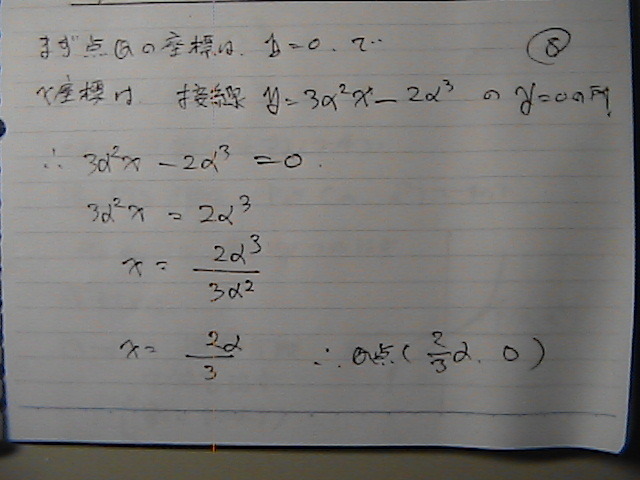 まず点Qの座標は. y=0. で ⑧
x座標は. 接線 y=3α²x-2α³ の y=0の所
∴ 3α²x - 2α³ = 0.
3α²x = 2α³
x = 2α³/3α²
x = 2α/3 ∴ Q点(2/3 α. 0)